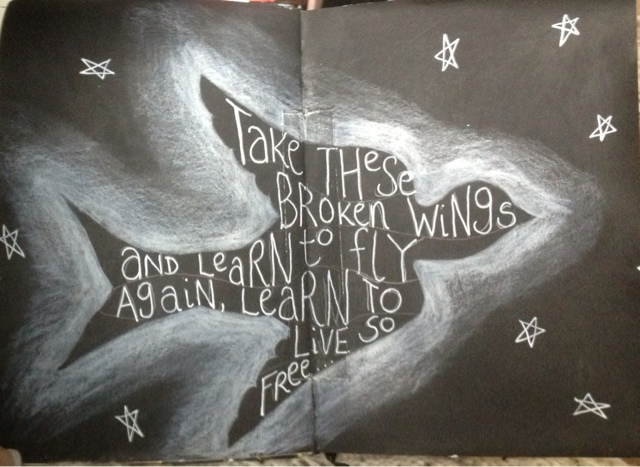 Take THese
BRoken WiNgs
aND LeaRN to fLY
AgaiN, LeaRN To
LiVe So
FRee...